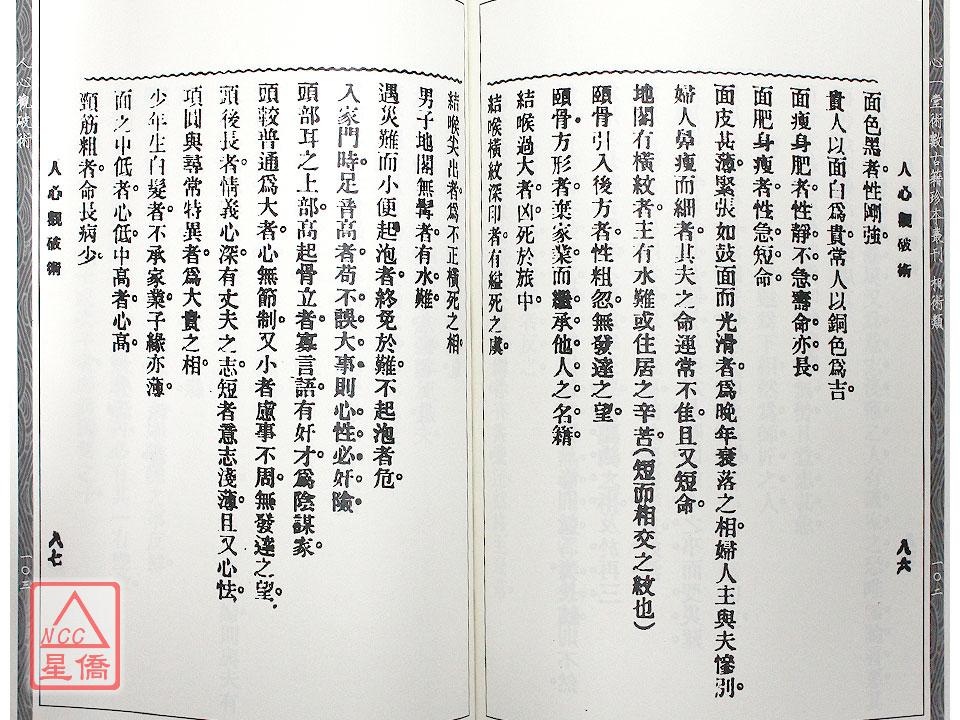 心一堂術數古籍珍本叢刊 相術類
一〇二
人心觀破術
八六
面色黑者性剛強。
貴人以面白爲貴常人以銅色爲吉。
面瘦身肥者性靜不急壽命亦長。
面肥身瘦者性急短命。
面皮甚薄緊張如鼓面而光滑者爲晚年衰落之相婦人主與夫慘別。
婦人鼻瘦而細者其夫之命運常不佳且又短命。
地閣有橫紋者主有水難或住居之辛苦(短而相交之紋也)
頤骨引入後方者性粗忽無發達之望。
頤骨方形者棄家業而繼承他人之名籍。
結喉過大者凶死於旅中。
結喉橫紋深印者有縊死之虞。
結喉尖出者爲不正橫死之相。
男子地閣無鬚者有水難。
遇災難而小便起泡者終免於難不起泡者危。
入家門時足音高者苟不誤大事則心性必奸險。
頭部耳之上部高起骨立者寡言語有奸才爲陰謀家。
頭較普通爲大者心無節制又小者慮事不周無發達之望。
頭後長者情義心深有丈夫之志短者意志淺薄且又心怯。
項圓與尋常特異者爲大貴之相。
少年生白髮者不承家業子緣亦薄。
面之中低者心低中高者心高。
頸筋粗者命長病少。
人心觀破術
八七
人心觀破術
一〇三
NCC
星僑